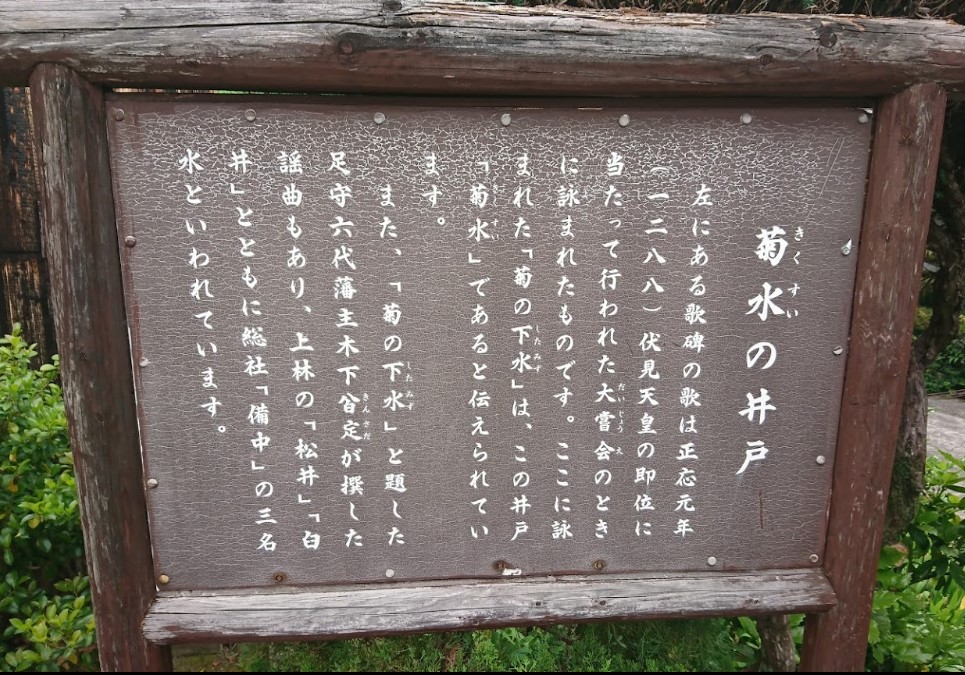 菊水の井戸
きくすい
左にある歌碑の歌は正応元年
（一二八八）伏見天皇の即位に
当たって行われた大嘗会のとき
だいじょうえ
に詠まれたものです。ここに詠
まれた「菊の下水」は、この井戸
したみず
「菊水」であると伝えられてい
きくすい
ます。
また、「菊の下水」と題した
したみず
足守六代藩主木下㒶定が撰した
きんさだ
謡曲もあり、上林の「松井」「臼
井」とともに総社「備中」の三名
水といわれています。